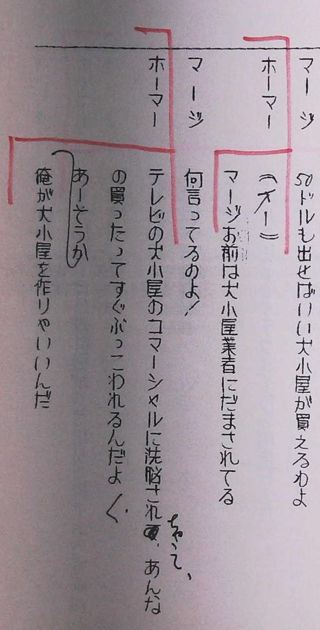 マージ 50ドルも出せばいい犬小屋が買えるわよ
ホーマー （イー）
マージお前は犬小屋業者にだまされてる
マージ 何言ってるのよ!
ホーマー テレビの犬小屋のコマーシャルに洗脳されちゃって、あんな
の買ったってすぐぶっこわれるんだよ
あーそうか
俺が犬小屋を作りゃいいんだ